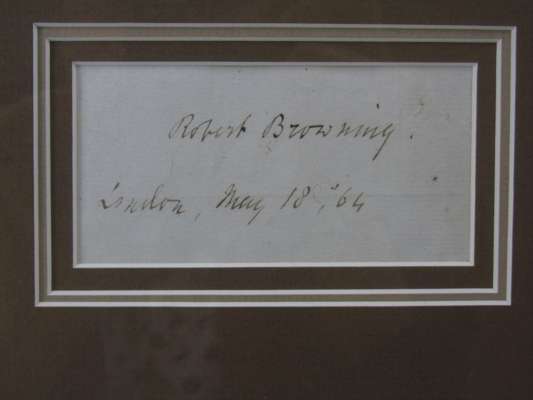 Robert Browning.
London, May 18, '64